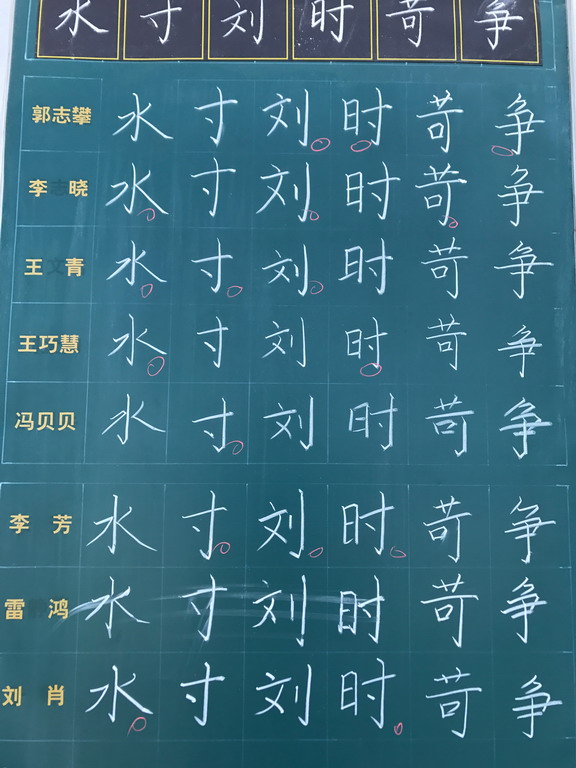 水 寸 刘 时 苛 争
郭志攀 水 寸 刘 时 苛 争
李晓 水 寸 刘 时 苛 争
王青 水 寸 刘 时 苛 争
王巧慧 水 寸 刘 时 苛 争
冯贝贝 水 寸 刘 时 苛 争
李芳 水 寸 刘 时 苛 争
雷鸿 水 寸 刘 时 苛 争
刘肖 水 寸 刘 时 苛 争